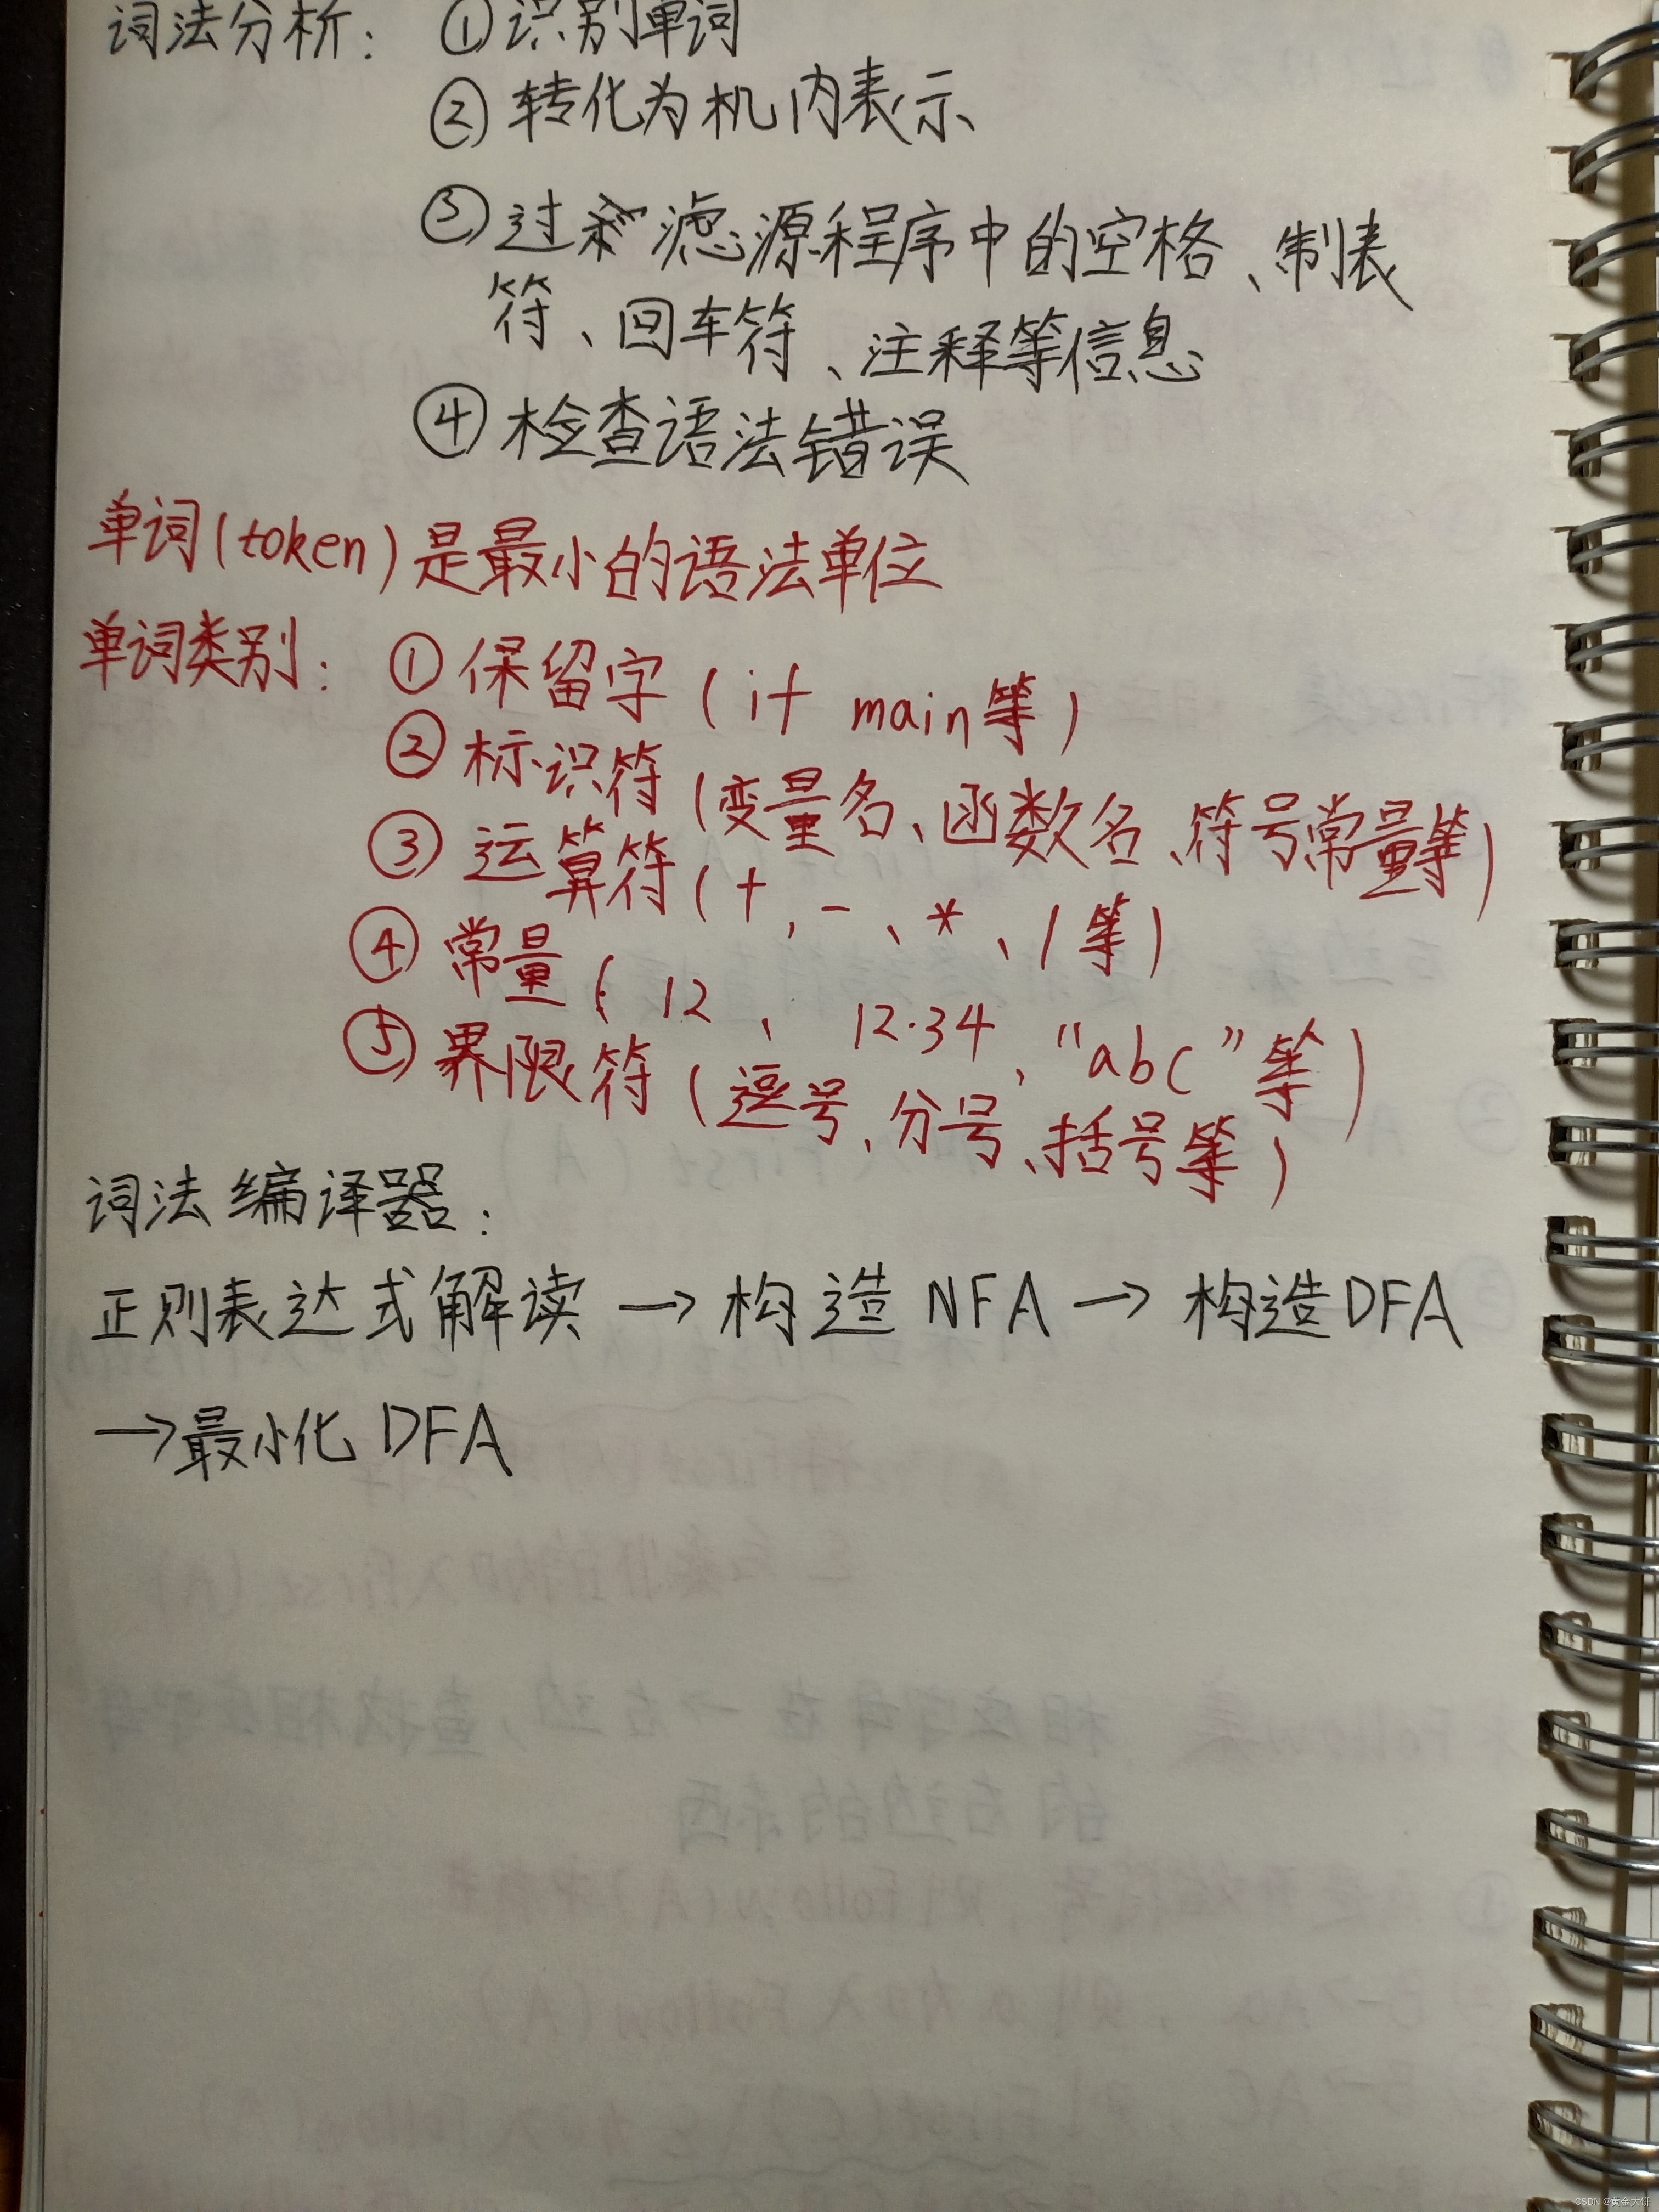 词法分析: ①识别单词
② 转化为机内表示
③ 过滤源程序中的空格、制表
符、回车符、注释等信息
④ 检查语法错误
单词(token)是最小的语法单位
单词类别: ①保留字(if main等)
② 标识符(变量名、函数名、符号常量等)
③ 运算符(+,-、*、/等)
④ 常量(12、12.34,"abc"等)
⑤ 界限符(逗号、分号、括号等)
词法编译器:
正则表达式解读→构造NFA→构造DFA
→最小化DFA
CSDN @黄金大饼